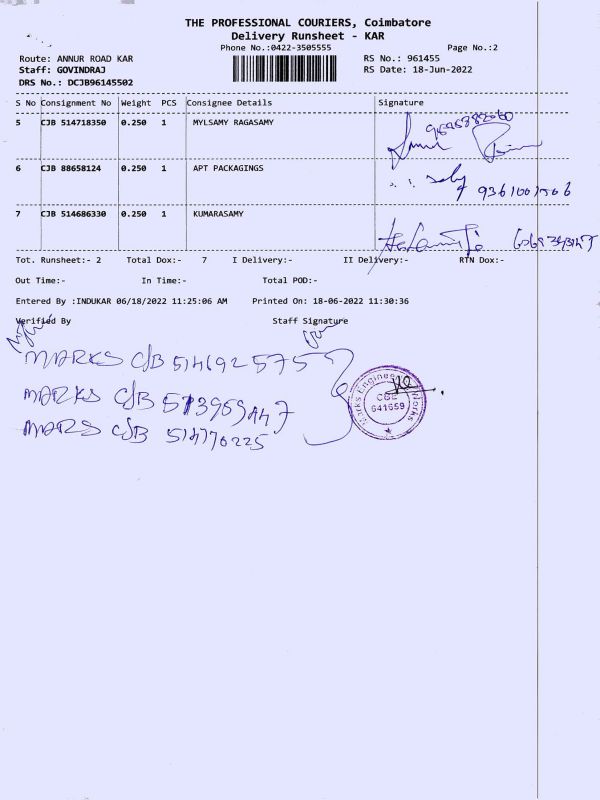 THE PROFESSIONAL COURIERS, Coimbatore
Delivery Runsheet - KAR
Phone No.:0422-3505555 Page No.:2
Route: ANNUR ROAD KAR RS No.: 961455
Staff: GOVINDRAJ RS Date: 18-Jun-2022
DRS No.: DCJB96145502
S No Consignment No Weight PCS Consignee Details Signature
5 CJB 514718350 0.250 1 MYLSAMY RAGASAMY
6 CJB 88658124 0.250 1 APT PACKAGINGS
7 CJB 514686330 0.250 1 KUMARASAMY
Tot. Runsheet:- 2 Total Dox:- 7 I Delivery:- II Delivery:- RTN Dox:-
Out Time:- In Time:- Total POD:-
Entered By :INDUKAR 06/18/2022 11:25:06 AM Printed On: 18-06-2022 11:30:36
Verified By Staff Signature
MARKS CJB 514692575
MARKS CJB
MARS CJB 514770225
Marks Engineering Works
CBE
641659